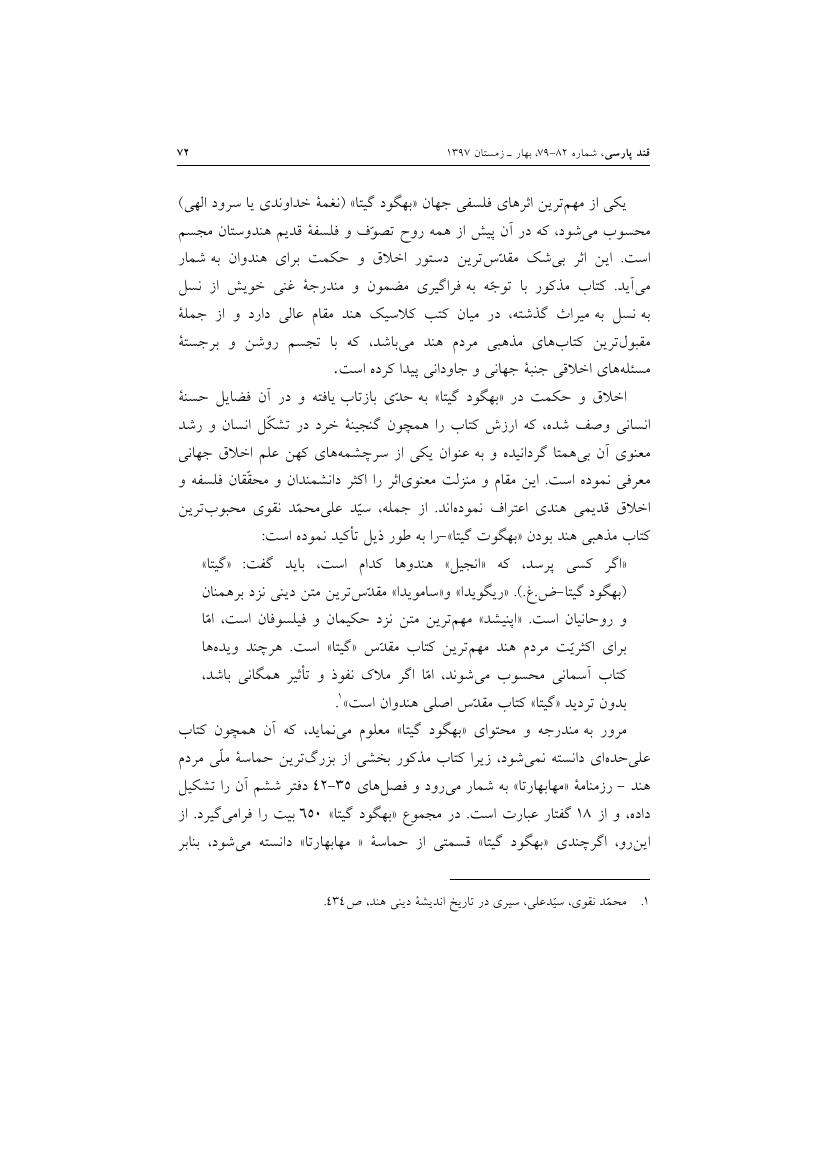 قند پارسی، شماره ۸۲-۷۹، بهار ـ زمستان ۱۳۹۷ ۷۲
یکی از مهم‌ترین اثرهای فلسفی جهان «بهگود گیتا» (نغمۀ خداوندی یا سرود الهی)
محسوب می‌شود، که در آن پیش از همه روح تصوّف و فلسفۀ قدیم هندوستان مجسم
است. این اثر بی‌شک مقدّس‌ترین دستور اخلاق و حکمت برای هندوان به شمار
می‌آید. کتاب مذکور با توجّه به فراگیری مضمون و مندرجۀ غنی خویش از نسل
به نسل به میراث گذشته، در میان کتب کلاسیک هند مقام عالی دارد و از جملۀ
مقبول‌ترین کتاب‌های مذهبی مردم هند می‌باشد، که با تجسم روشن و برجستۀ
مسئله‌های اخلاقی جنبۀ جهانی و جاودانی پیدا کرده است.
اخلاق و حکمت در «بهگود گیتا» به حدّی بازتاب یافته و در آن فضایل حسنۀ
انسانی وصف شده، که ارزش کتاب را همچون گنجینۀ خرد در تشکّل انسان و رشد
معنوی آن بی‌همتا گردانیده و به عنوان یکی از سرچشمه‌های کهن علم اخلاق جهانی
معرفی نموده است. این مقام و منزلت معنوی‌اثر را اکثر دانشمندان و محقّقان فلسفه و
اخلاق قدیمی هندی اعتراف نموده‌اند. از جمله، سیّد علی‌محمّد نقوی محبوب‌ترین
کتاب مذهبی هند بودن «بهگوت گیتا»-را به طور ذیل تأکید نموده است:
«اگر کسی پرسد، که «انجیل» هندوها کدام است، باید گفت: «گیتا»
(بهگود گیتا-ض.غ.). «ریگویدا» و«سامویدا» مقدّس‌ترین متن دینی نزد برهمنان
و روحانیان است. «اپنیشد» مهم‌ترین متن نزد حکیمان و فیلسوفان است، امّا
برای اکثریّت مردم هند مهم‌ترین کتاب مقدّس «گیتا» است. هرچند ویده‌ها
کتاب آسمانی محسوب می‌شوند، امّا اگر ملاک نفوذ و تأثیر همگانی باشد،
بدون تردید «گیتا» کتاب مقدّس اصلی هندوان است»۱.
مرور به مندرجه و محتوای «بهگود گیتا» معلوم می‌نماید، که آن همچون کتاب
علی‌حده‌ای دانسته نمی‌شود، زیرا کتاب مذکور بخشی از بزرگ‌ترین حماسۀ ملّی مردم
هند - رزمنامۀ «مهابهارتا» به شمار می‌رود و فصل‌های ۳۵-۴۲ دفتر ششم آن را تشکیل
داده، و از ۱۸ گفتار عبارت است. در مجموع «بهگود گیتا» ۶۵۰ بیت را فرامی‌گیرد. از
این‌رو، اگرچندی «بهگود گیتا» قسمتی از حماسۀ « مهابهارتا» دانسته می‌شود، بنابر
۱. محمّد نقوی، سیّدعلی، سیری در تاریخ اندیشۀ دینی هند، ص۴۳۴.